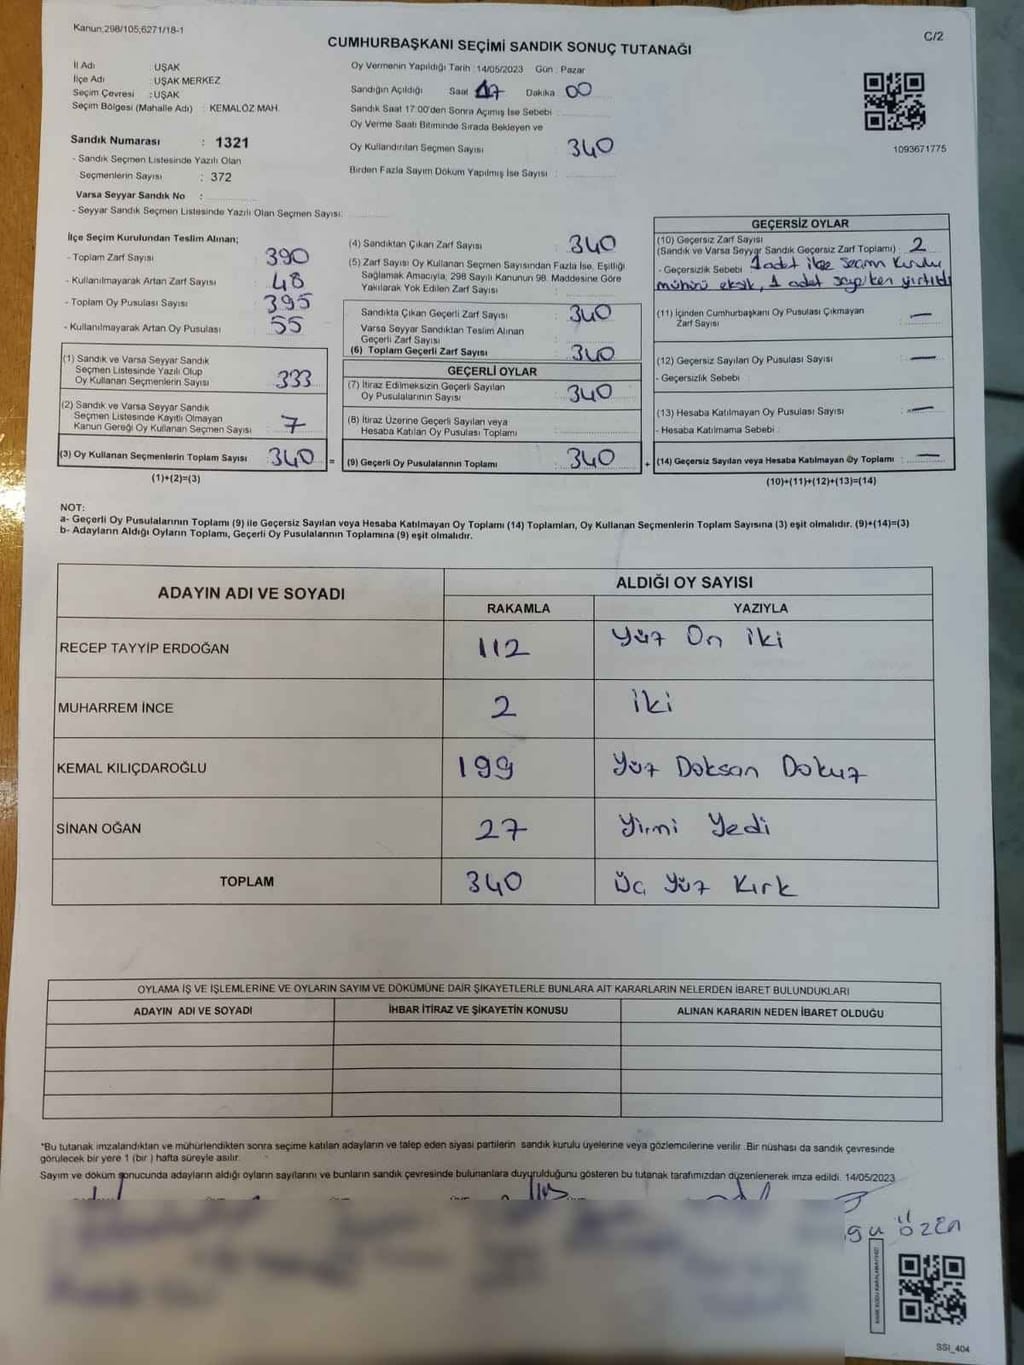 Kanun;298/105,6271/18-1
C/2
CUMHURBAŞKANI SEÇİMİ SANDIK SONUÇ TUTANAĞI
İl Adı : UŞAK
İlçe Adı : UŞAK MERKEZ
Seçim Çevresi : UŞAK
Seçim Bölgesi (Mahalle Adı) : KEMALÖZ MAH.
Sandık Numarası : 1321
- Sandık Seçmen Listesinde Yazılı Olan
Seçmenlerin Sayısı : 372
Varsa Seyyar Sandık No :
- Seyyar Sandık Seçmen Listesinde Yazılı Olan Seçmen Sayısı:
Oy Vermenin Yapıldığı Tarih : 14/05/2023 Gün : Pazar
Sandığın Açıldığı Saat 17 Dakika 00
Sandık Saat 17:00'den Sonra Açımış İse Sebebi :
Oy Verme Saati Bitiminde Sırada Bekleyen ve
Oy Kullandırılan Seçmen Sayısı : 340
Birden Fazla Sayım Döküm Yapılmış İse Sayısı :
1093671775
İlçe Seçim Kurulundan Teslim Alınan;
- Toplam Zarf Sayısı : 390
- Kullanılmayarak Artan Zarf Sayısı : 48
- Toplam Oy Pusulası Sayısı : 395
- Kullanılmayarak Artan Oy Pusulası : 55
(1) Sandık ve Varsa Seyyar Sandık
Seçmen Listesinde Yazılı Olup
Oy Kullanan Seçmenlerin Sayısı : 333
(2) Sandık ve Varsa Seyyar Sandık
Seçmen Listesinde Kayıtlı Olmayan
Kanun Gereği Oy Kullanan Seçmen Sayısı : 7
(3) Oy Kullanan Seçmenlerin Toplam Sayısı : 340 =
(1)+(2)=(3)
(4) Sandıktan Çıkan Zarf Sayısı : 340
(5) Zarf Sayısı Oy Kullanan Seçmen Sayısından Fazla İse, Eşitliği
Sağlamak Amacıyla, 298 Sayılı Kanunun 98. Maddesine Göre
Yakılarak Yok Edilen Zarf Sayısı :
Sandıkta Çıkan Geçerli Zarf Sayısı : 340
Varsa Seyyar Sandıktan Teslim Alınan
Geçerli Zarf Sayısı :
(6) Toplam Geçerli Zarf Sayısı : 340
GEÇERLİ OYLAR
(7) İtiraz Edilmeksizin Geçerli Sayılan
Oy Pusulalarının Sayısı : 340
(8) İtiraz Üzerine Geçerli Sayılan veya
Hesaba Katılan Oy Pusulası Toplamı :
(9) Geçerli Oy Pusulalarının Toplamı : 340 +
GEÇERSİZ OYLAR
(10) Geçersiz Zarf Sayısı
(Sandık ve Varsa Seyyar Sandık Geçersiz Zarf Toplamı) : 2
- Geçersizlik Sebebi : 1 adet ilçe seçim kurulu
mührü eksik, 1 adet sayarken yırtıldı
(11) İçinden Cumhurbaşkanı Oy Pusulası Çıkmayan
Zarf Sayısı : —
(12) Geçersiz Sayılan Oy Pusulası Sayısı : —
- Geçersizlik Sebebi :
(13) Hesaba Katılmayan Oy Pusulası Sayısı : —
- Hesaba Katılmama Sebebi :
(14) Geçersiz Sayılan veya Hesaba Katılmayan Oy Toplamı : —
(10)+(11)+(12)+(13)=(14)
NOT:
a- Geçerli Oy Pusulalarının Toplamı (9) ile Geçersiz Sayılan veya Hesaba Katılmayan Oy Toplamı (14) Toplamları, Oy Kullanan Seçmenlerin Toplam Sayısına (3) eşit olmalıdır. (9)+(14)=(3)
b- Adayların Aldığı Oyların Toplamı, Geçerli Oy Pusulalarının Toplamına (9) eşit olmalıdır.
ADAYIN ADI VE SOYADI ALDIĞI OY SAYISI
RAKAMLA YAZIYLA
RECEP TAYYİP ERDOĞAN 112 Yüz On iki
MUHARREM İNCE 2 iki
KEMAL KILIÇDAROĞLU 199 Yüz Doksan Dokuz
SİNAN OĞAN 27 Yirmi Yedi
TOPLAM 340 Üç Yüz Kırk
OYLAMA İŞ VE İŞLEMLERİNE VE OYLARIN SAYIM VE DÖKÜMÜNE DAİR ŞİKAYETLERLE BUNLARA AİT KARARLARIN NELERDEN İBARET BULUNDUKLARI
ADAYIN ADI VE SOYADI İHBAR İTİRAZ VE ŞİKAYETİN KONUSU ALINAN KARARIN NEDEN İBARET OLDUĞU
*Bu tutanak imzalandıktan ve mühürlendikten sonra seçime katılan adayların ve talep eden siyasi partilerin sandık kurulu üyelerine veya gözlemcilerine verilir. Bir nüshası da sandık çevresinde
görülecek bir yere 1 (bir ) hafta süreyle asılır.
Sayım ve döküm sonucunda adayların aldığı oyların sayılarını ve bunların sandık çevresinde bulunanlara duyurulduğunu gösteren bu tutanak tarafımızdan düzenlenerek imza edildi. 14/05/2023
ÖZEN
SSI_404